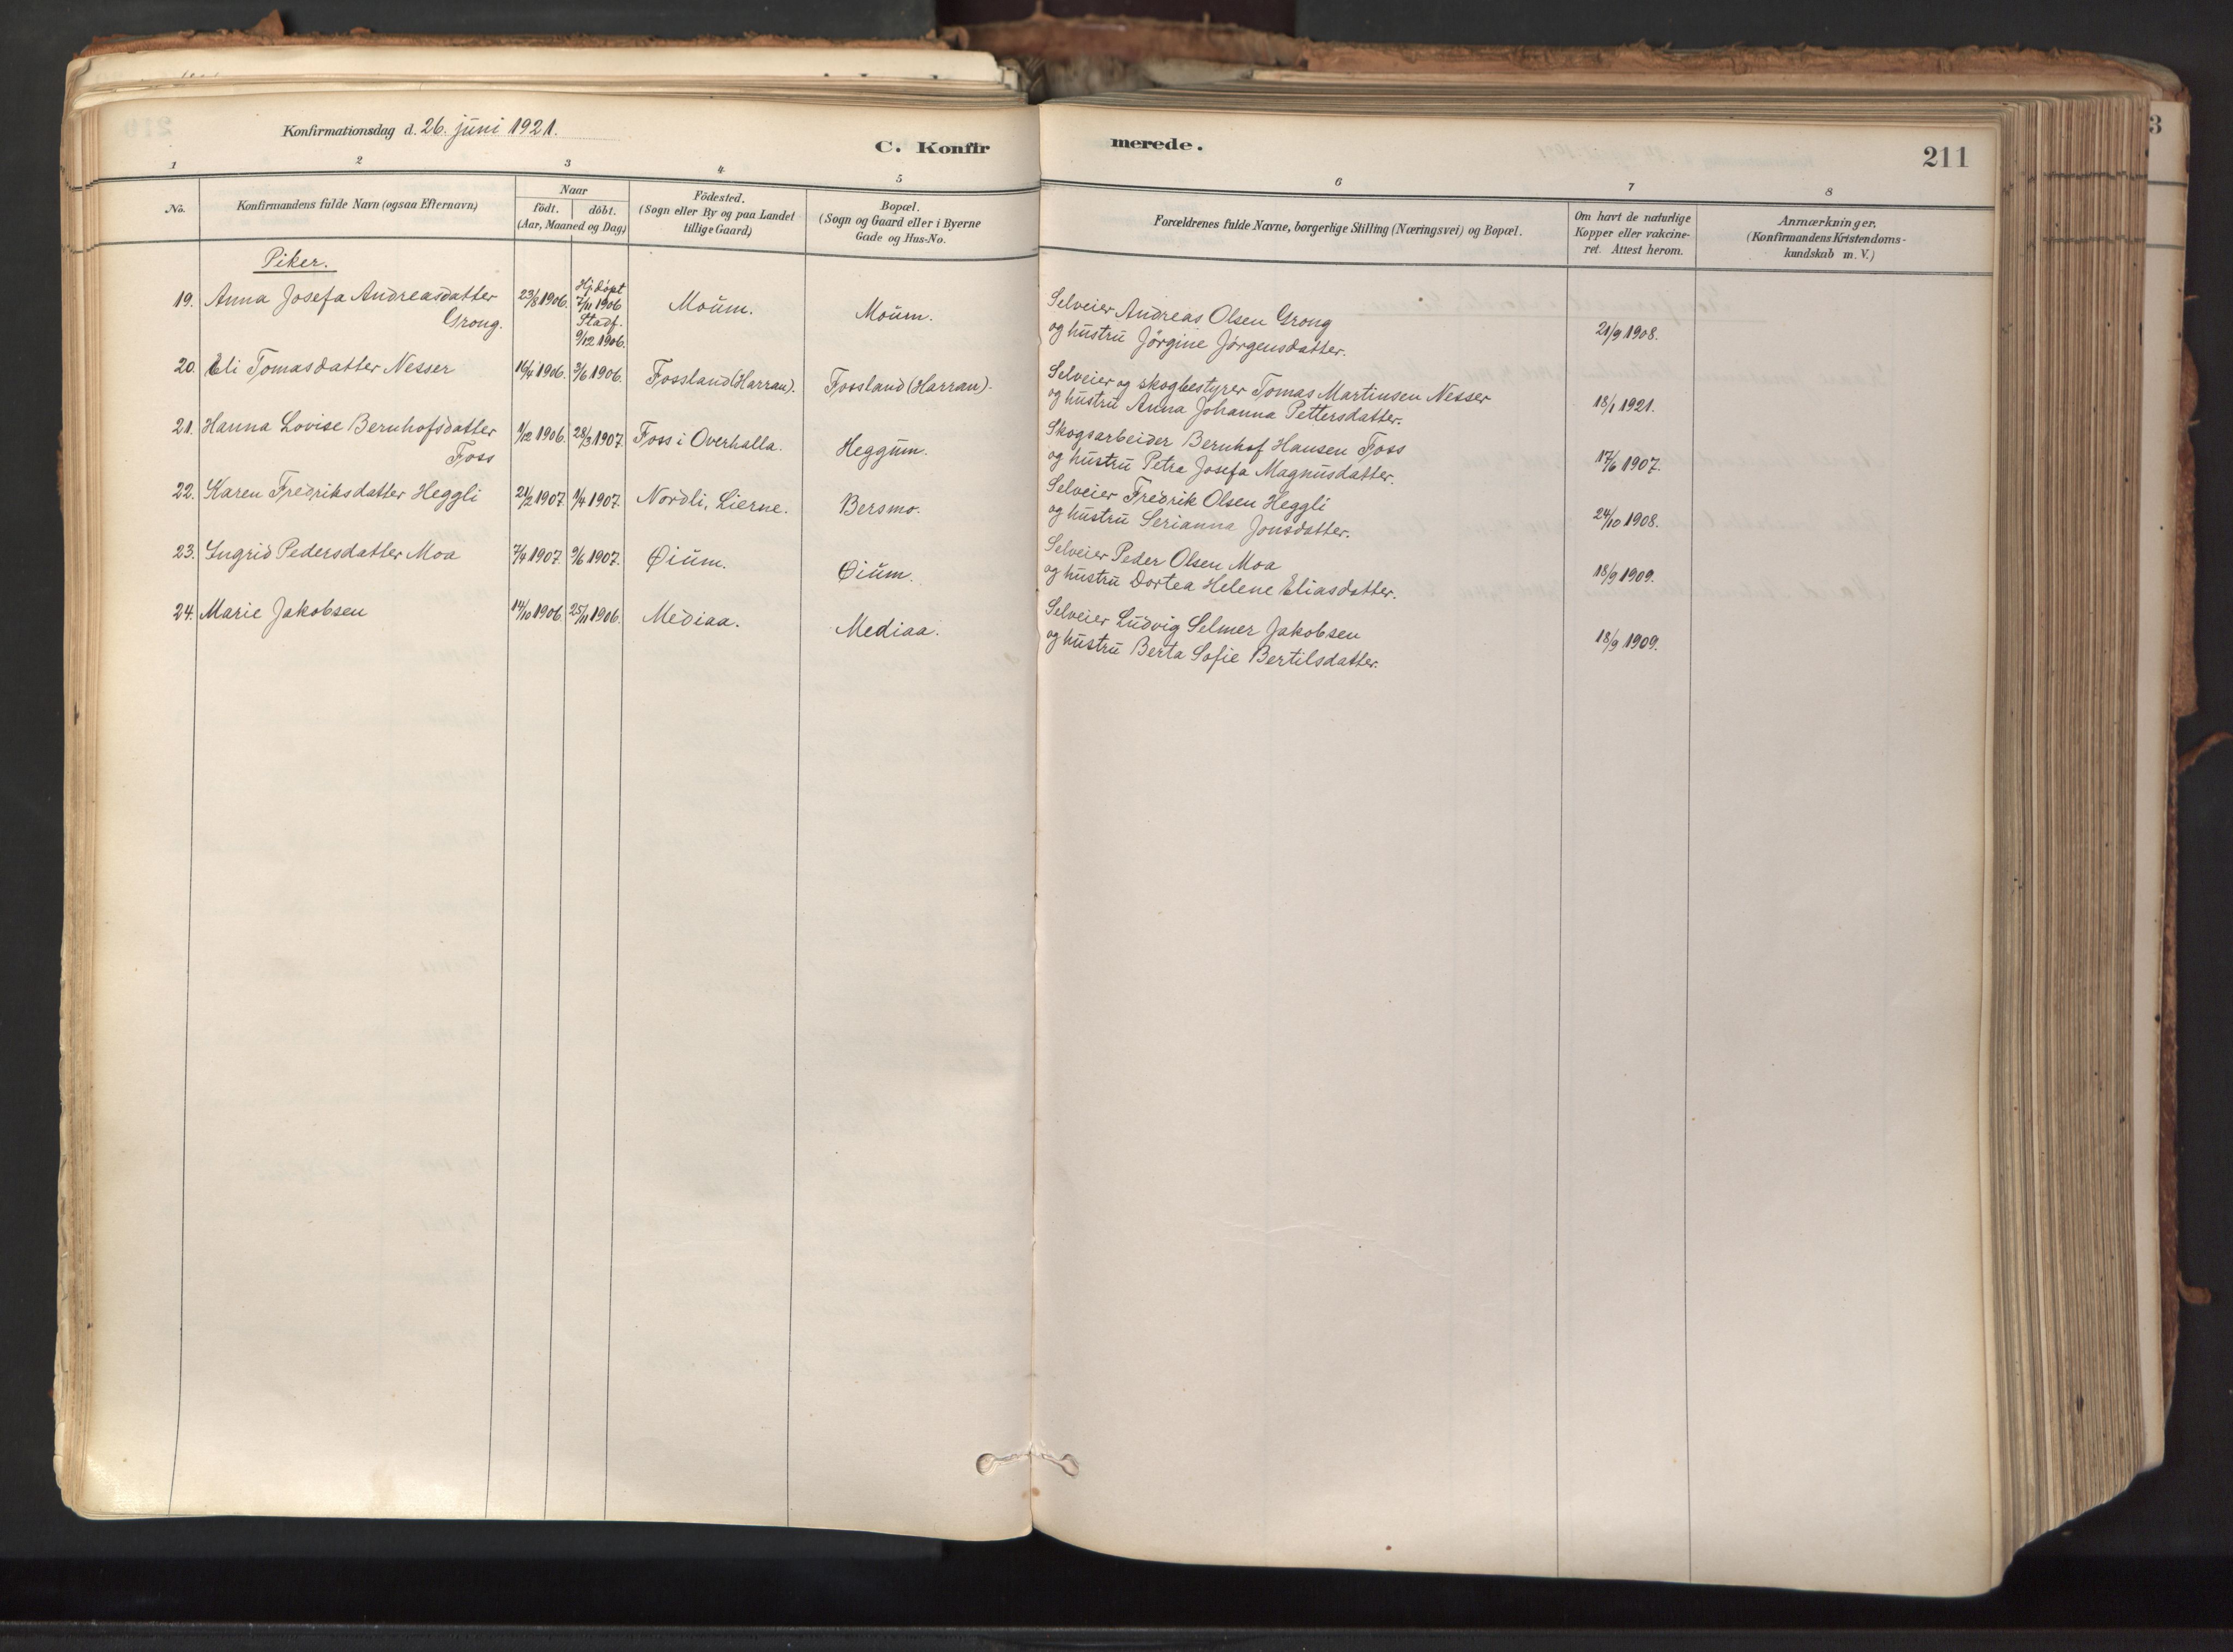 Konfirmationsdag d. 26. juni 1921.
C. Konfirmerede.
211
1 2 3 4 5 6 7 8
No.
Konfirmandens fulde Navn (ogsaa Efternavn)
Naar
födt. döbt.
(Aar, Maaned og Dag)
Födested.
(Sogn eller By og paa Landet
tillige Gaard)
Bopæl.
(Sogn og Gaard eller i Byerne
Gade og Hus-No.
Forældrenes fulde Navne, borgerlige Stilling (Næringsvei) og Bopæl.
Om havt de naturlige
Kopper eller vakcine-
ret. Attest herom.
Anmærkninger.
(Konfirmandens Kristendoms-
kundskab m. V.)
Piker.
19. Anna Josefa Andreasdatter
Grong.
23/8 1906.
Hj.døpt
7/11 1906
Stadf.
9/12 1906.
Moum.
Moum.
Selveier Andreas Olsen Grong
og hustru Jørgine Jørgensdatter.
21/9 1908.
20. Eli Tomasdatter Nesser
16/4 1906. 3/6 1906. Fossland (Harran). Fossland (Harran).
Selveier og skogbestyrer Tomas Martinsen Nesser
og hustru Anna Johanna Pettersdatter.
18/1 1921.
21. Hanna Lovise Bernhofsdatter
Foss
1/12 1906. 28/3 1907. Foss i Overhalla. Heggum.
Skogsarbeider Bernhof Hansen Foss
og hustru Petra Josefa Magnusdatter.
17/6 1907.
22. Karen Fredriksdatter Heggli
21/2 1907. 1/4 1907. Nordli, Lierne. Bersmo.
Selveier Fredrik Olsen Heggli
og hustru Serianna Jonsdatter.
24/10 1908.
23. Ingrid Pedersdatter Moa
7/4 1907. 9/6 1907. Øium. Øium.
Selveier Peder Olsen Moa
og hustru Dortea Helene Eliasdatter.
18/9 1909.
24. Marie Jakobsen
14/10 1906. 25/11 1906. Mediaa. Mediaa.
Selveier Ludvig Selmer Jakobsen
og hustru Berta Sofie Bertilsdatter.
18/9 1909.
3